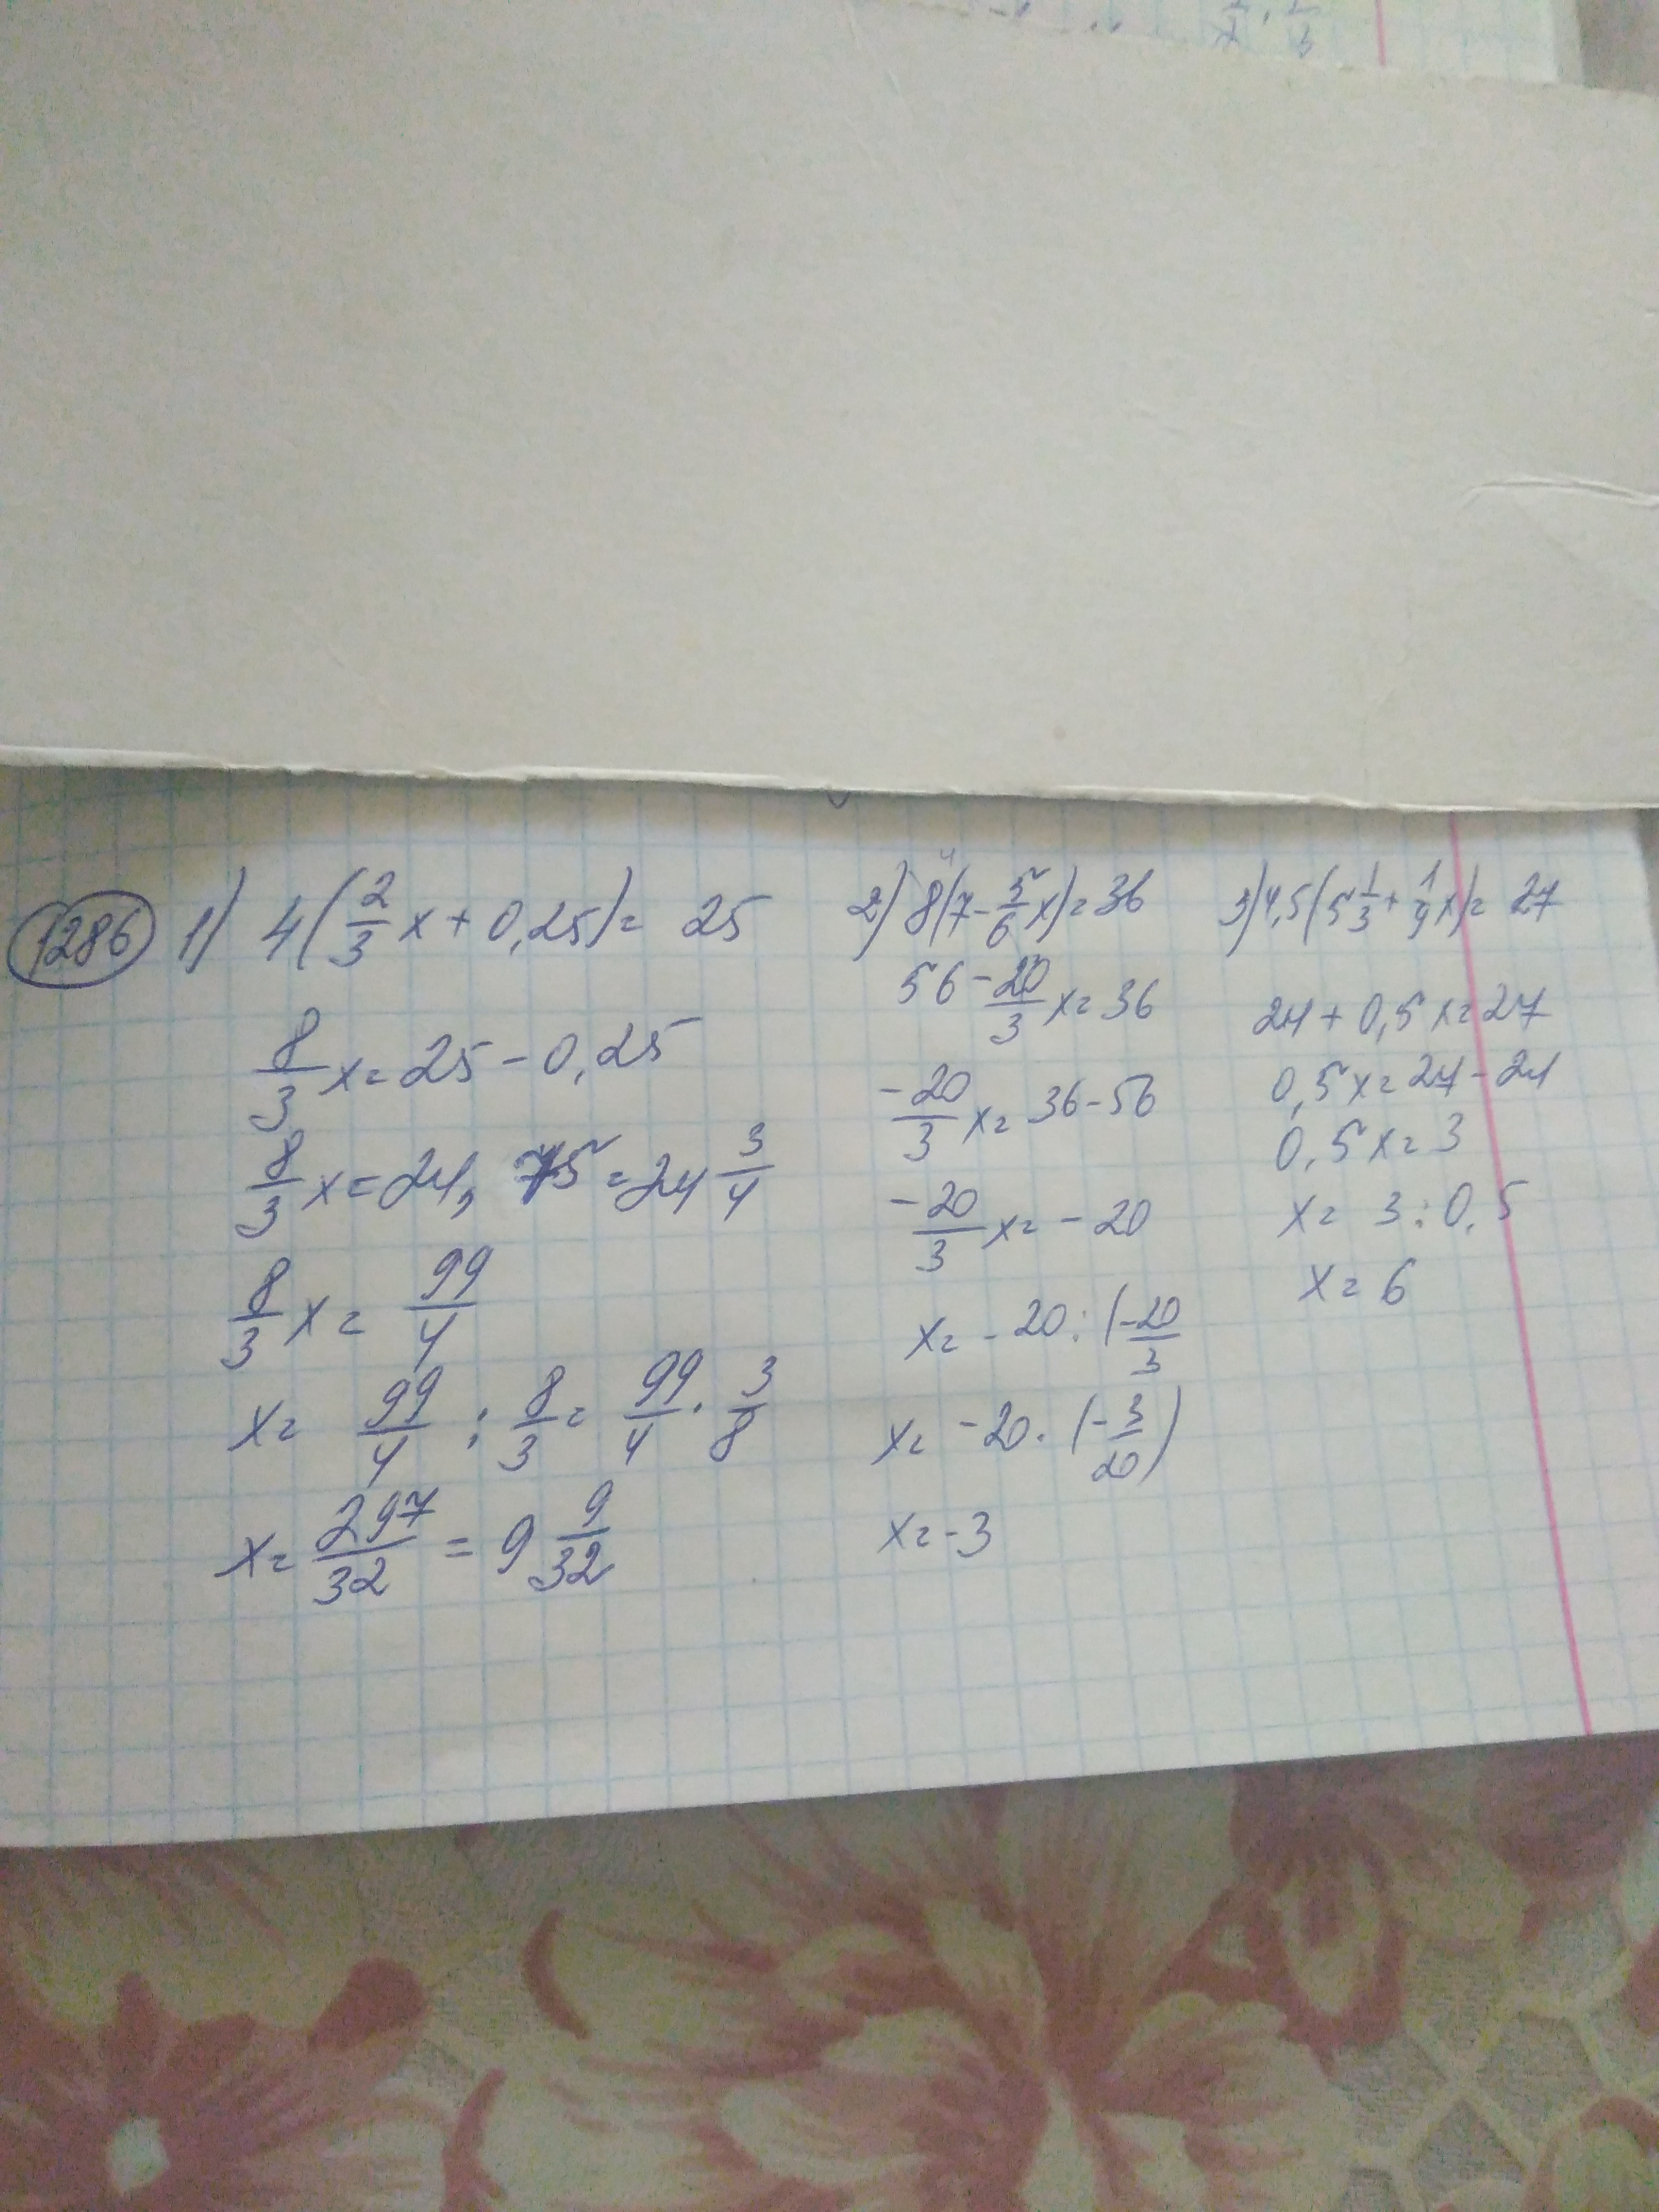 1286 1) 4(2/3 x + 0,25) = 25
8/3 x = 25 - 0,25
8/3 x = 24, 75 = 24 3/4
8/3 x = 99/4
x = 99/4 : 8/3 = 99/4 · 3/8
x = 297/32 = 9 9/32
2) 8(7 - 5/6 x) = 36
56 - 20/3 x = 36
-20/3 x = 36 - 56
-20/3 x = -20
x = -20 : (-20/3
x = -20 · (-3/20)
x = -3
3) 4,5(5 1/3 + 1/9 x) = 27
24 + 0,5x = 27
0,5x = 27 - 24
0,5x = 3
x = 3 : 0,5
x = 6